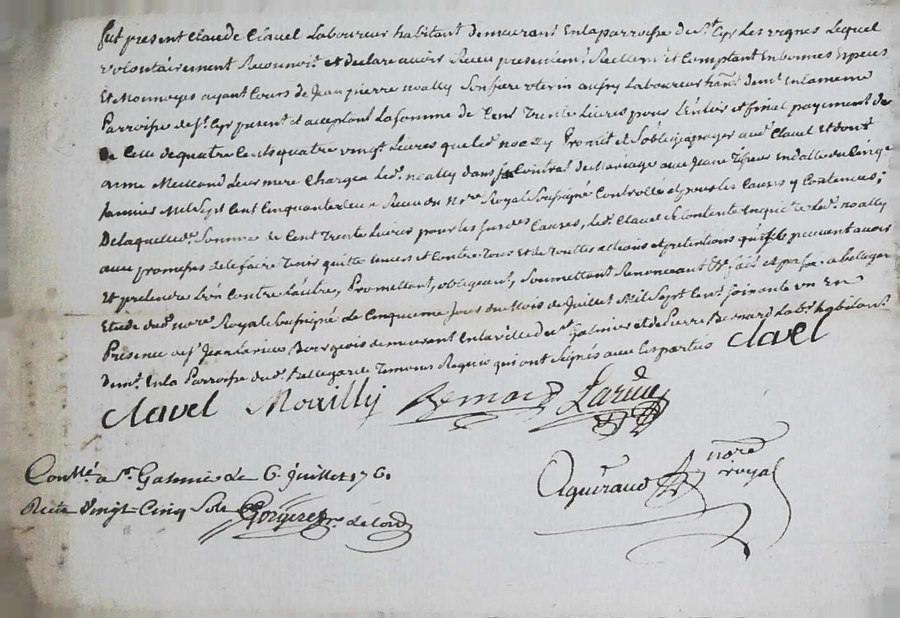 fut present Claude Clavel Laboureur habitant demeurant En la parroisse de St. Cyr Les vignes Lequel
volontairement Reconnoit et declare avoir Receu presentemt. Reellemt. et Comptant En bonnes Especes
Et Monnoyes ayant Cours de Jean pierre noally Son frere uterin aussy Laboureur hant. demt. En la meme
Parroisse de St. Cyr present et acceptant La somme de Cent Trente Livres pour L'entier et final payement de
de Celle de quatre Cents quatre vingt Livres que led. noally Promit et S'obligea payer aud. Clavel Et dont
anne Leur mere Chargea Led. noally dans Contrat de Mariage avec Jeane du Cinq
Janvier Mil Sept Cent Cinquante Receu du nore. Royal Soussigné Controllé et pour les Causes y Contenues;
De laquelle de. Somme de Cent Trente Livres pour les susdes. Causes, led. Clavel Se Contente En quitte led. noally
avec promesse de le faire Tenir quitte Envers et Contre Tous Et de Touttes actions et pretentions qu'ils peuvent avoir
Et pretendre L'un Contre L'autre, Promettant, obligeant, Soumettant Renonceant &c. fait et passé a bellegarde
Etude dud. nore. Royal Soussigné Le Cinquieme Jour du Mois de Juillet Mil Sept Cent Soixante un En
Presence de Sr. Jean Larive Bourgeois demeurant En la ville de St. Galmier et de Pierre Bernard Labr. habitant
demt. En la Parroisse dud. bellegarde Temoins Requis qui ont Signés avec les parties Clavel
Clavel Noailly Bernard Larive
Conllé. a St. Galmier le 6. Juillet 176.
Reçu Vingt-Cinq Sols
nore royal